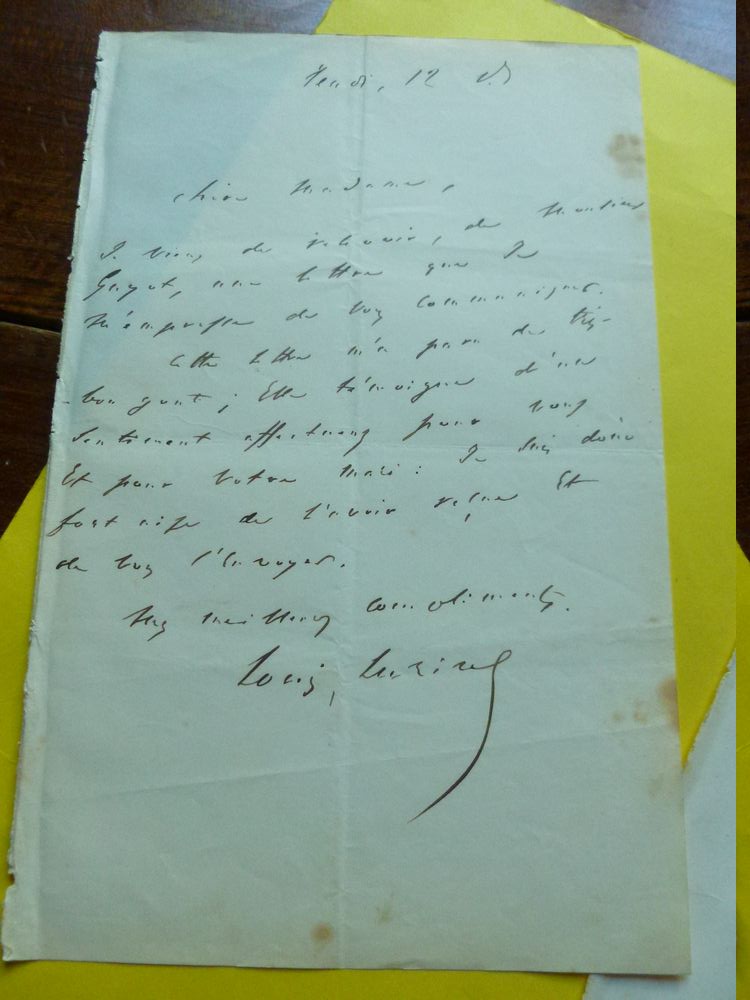 Jeudi, 12
chère Madame,
Je viens de recevoir, de Monsieur
Guyot, une lettre que Je
m'empresse de vous communiquer.
Cette lettre m'a paru de très
bon gout ; Elle témoigne d'un
sentiment affectueux pour vous
Et pour votre mari : Je suis donc
fort aise de l'avoir reçue Et
de vous l'Envoyer.
Mes meilleurs compliments.
Louis Lurine